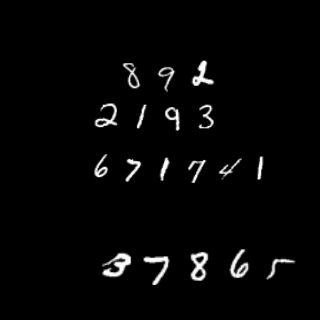 892
2193
671741
37865